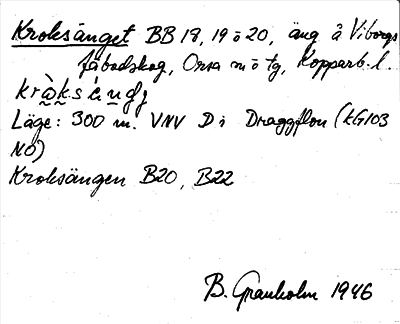 Kroksänget BB 18, 19 o 20, äng å Viborgs
fäbodskog, Orsa sn o tg, Kopparb. l.
Läge: 300 m. VNV D i Draggflon (KG103
NO)
Kroksängen B20, B22
B. Granholm 1946